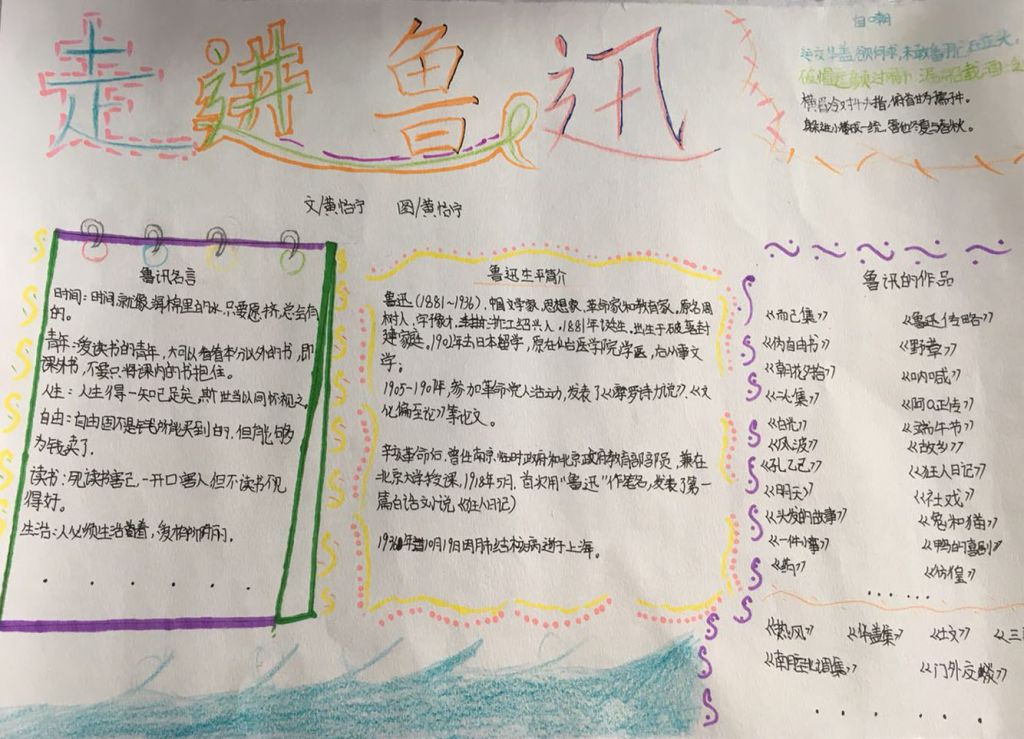 走进鲁迅
自嘲
运交华盖欲何求,未敢翻身已碰头,
破帽遮颜过闹市,漏船载酒
横眉冷对千夫指,俯首甘为孺子牛。
躲进小楼成一统,管他冬夏与春秋。
文/黄怡宁 图/黄怡宁
鲁讯名言
时间:时间就像海棉里的水,只要愿挤,总会有
的。
青年:爱读书的青年,大可以看看本分以外的书,即
课外书,不要只将课内的书抱住。
人生:人生得一知己足矣,斯世当以同怀视之。
自由:自由固不是钱所能买到的,但能够
为钱卖了。
读书:死读书害己,一开口害人但不读书不见
得好。
生活:人必须生活着,爱才有所附丽。
. . . . . .
鲁迅生平简介
鲁迅(1881~1936),中国文学家、思想家、革命家和教育家,原名周
树人,字豫才,浙江绍兴人,1881年诞生,出生于破落封
建家庭。1902年去日本留学,原在仙台医学院学医,后从事文
学。
1905-1907年,参加革命党人活动,发表了《摩罗诗力说》、《文
化偏至论》等论文。
辛亥革命后,曾任南京临时政府和北京政府教育部部员,兼在
北京大学授课,1918年5月,首次用“鲁迅”作笔名,发表了第一
篇白话文小说《狂人日记》
1936年10月19日因肺结核病逝于上海。
鲁讯的作品
《而己集》 《鲁迅传略》
《伪自由书》 《野草》
《朝花夕拾》 《呐喊》
《二心集》 《阿Q正传》
《白光》 《端午节》
《风波》 《故乡》
《孔乙己》 《狂人日记》
《明天》 《社戏》
《头发的故事》 《兔和猫》
《一件小事》 《鸭的喜剧》
《药》 《彷徨》
......
《热风》 《华盖集》 《坟》 《三
《南腔北调集》 《门外文谈》
. . . . . .